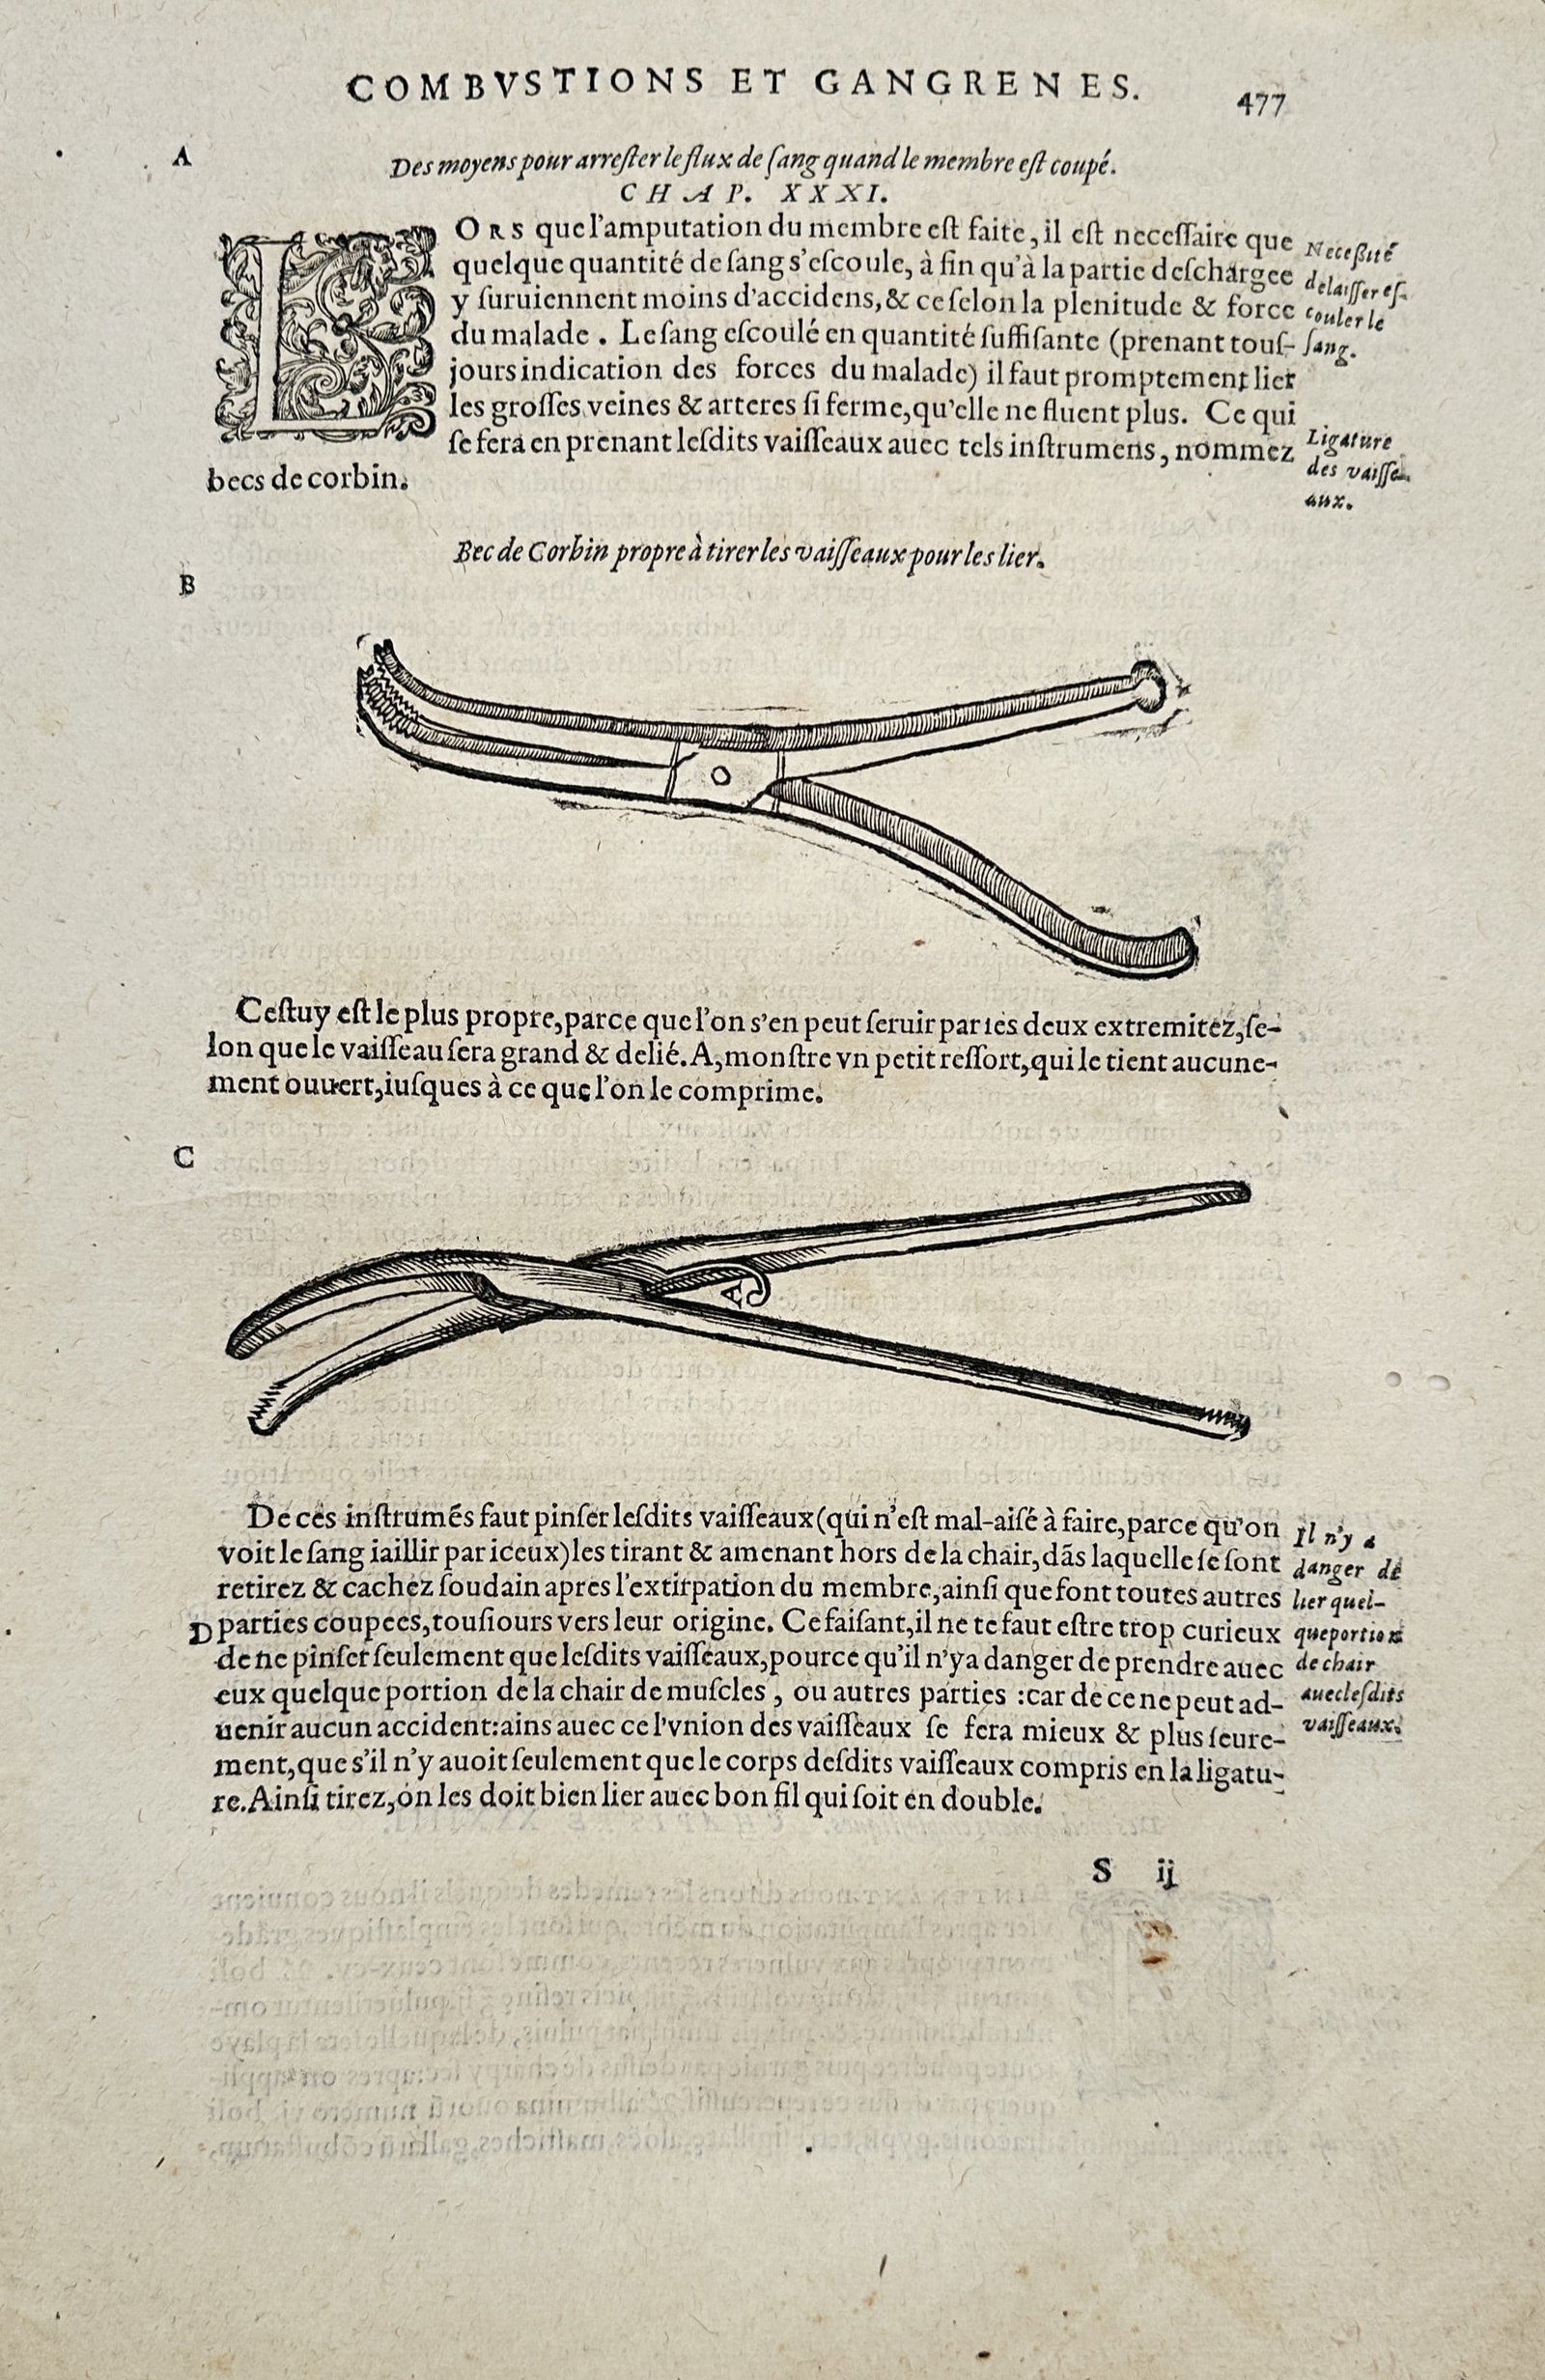 COMBVSTIONS ET GANGRENES.
477
A
Des moyens pour arreſter le flux de ſang quand le membre eſt coupé.
CHAP. XXXI.
LORS que l'amputation du membre eſt faite, il eſt neceſſaire que
quelque quantité de ſang s'eſcoule, à fin qu'à la partie deſchargee
y ſuruiennent moins d'accidens, & ce ſelon la plenitude & force
du malade. Le ſang eſcoulé en quantité ſuffiſante (prenant touſ-
jours indication des forces du malade) il faut promptement lier
les groſſes veines & arteres ſi ferme, qu'elle ne fluent plus. Ce qui
ſe fera en prenant leſdits vaiſſeaux auec tels inſtrumens, nommez
becs de corbin.
Neceßité
de laiſſer eſ-
couler le
ſang.
Ligature
des vaiſſe-
aux.
Bec de Corbin propre à tirer les vaiſſeaux pour les lier.
B
Ceſtuy eſt le plus propre, parce que l'on s'en peut ſeruir par les deux extremitez, ſe-
lon que le vaiſſeau ſera grand & delié. A, monſtre vn petit reſſort, qui le tient aucune-
ment ouuert, iuſques à ce que l'on le comprime.
C
A
De ces inſtrumẽs faut pinſer leſdits vaiſſeaux (qui n'eſt mal-aiſé à faire, parce qu'on
voit le ſang iaillir par iceux) les tirant & amenant hors de la chair, dãs laquelle ſe ſont
retirez & cachez ſoudain apres l'extirpation du membre, ainſi que font toutes autres
D
parties coupees, touſiours vers leur origine. Ce faiſant, il ne te faut eſtre trop curieux
de ne pinſer ſeulement que leſdits vaiſſeaux, pource qu'il n'y a danger de prendre auec
eux quelque portion de la chair de muſcles, ou autres parties : car de ce ne peut ad-
uenir aucun accident: ains auec ce l'vnion des vaiſſeaux ſe fera mieux & plus ſeure-
ment, que s'il n'y auoit ſeulement que le corps deſdits vaiſſeaux compris en la ligatu-
re. Ainſi tirez, on les doit bien lier auec bon fil qui ſoit en double.
Il n'y a
danger de
lier quel-
que portion
de chair
auec leſdits
vaiſſeaux.
S ij